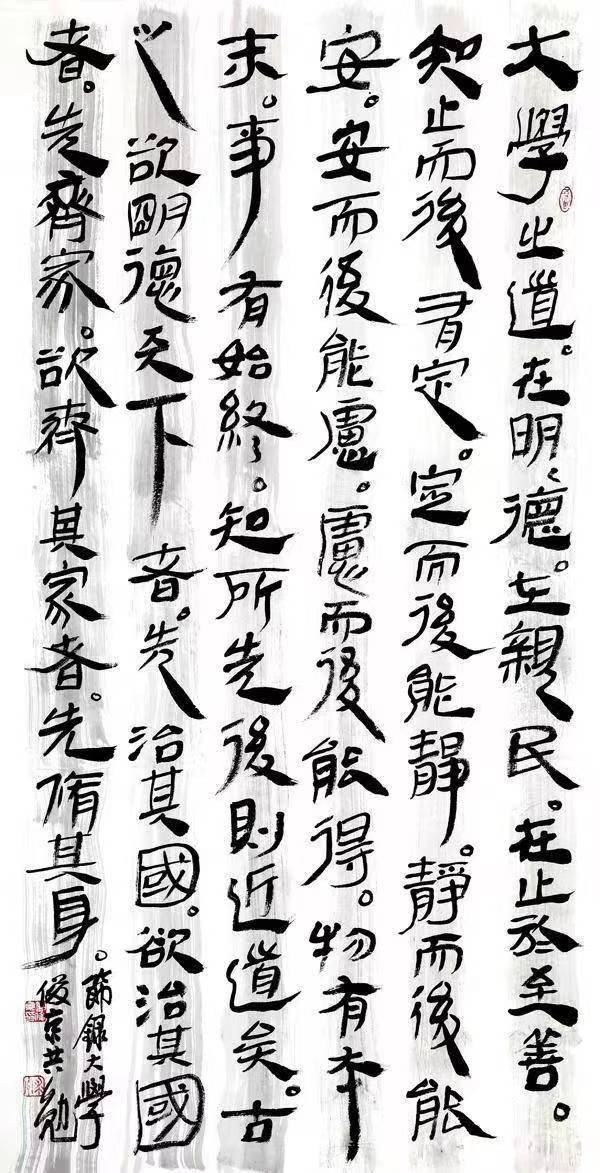 大學之道。在明〻德。在親民。在止於至善。
知止而後有定。定而後能靜。靜而後能
安。安而後能慮。慮而後能得。物有本
末。事有始終。知所先後則近道矣。古
之欲朙德天下者。先治其國。欲治其國
者。先齊家。欲齊其家者。先脩其身。
節錄大學
俊京共勉